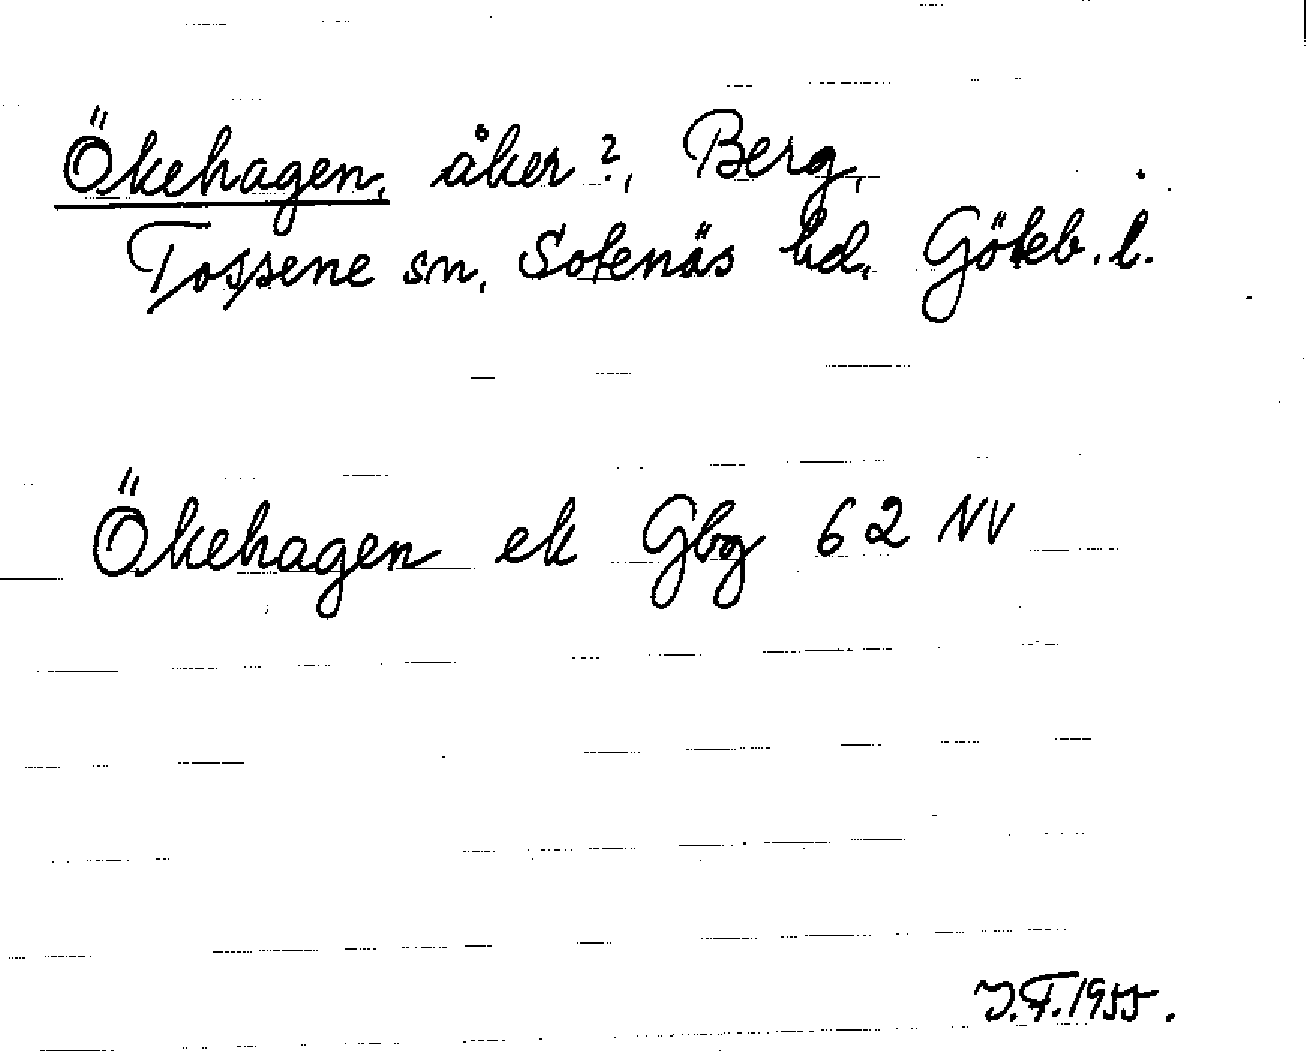 Ökehagen, åker?, Berg,
Tossene sn, Sotenäs hd, Göteb. l.
Ökehagen ek Gbg 62 NV
J.F. 1955.